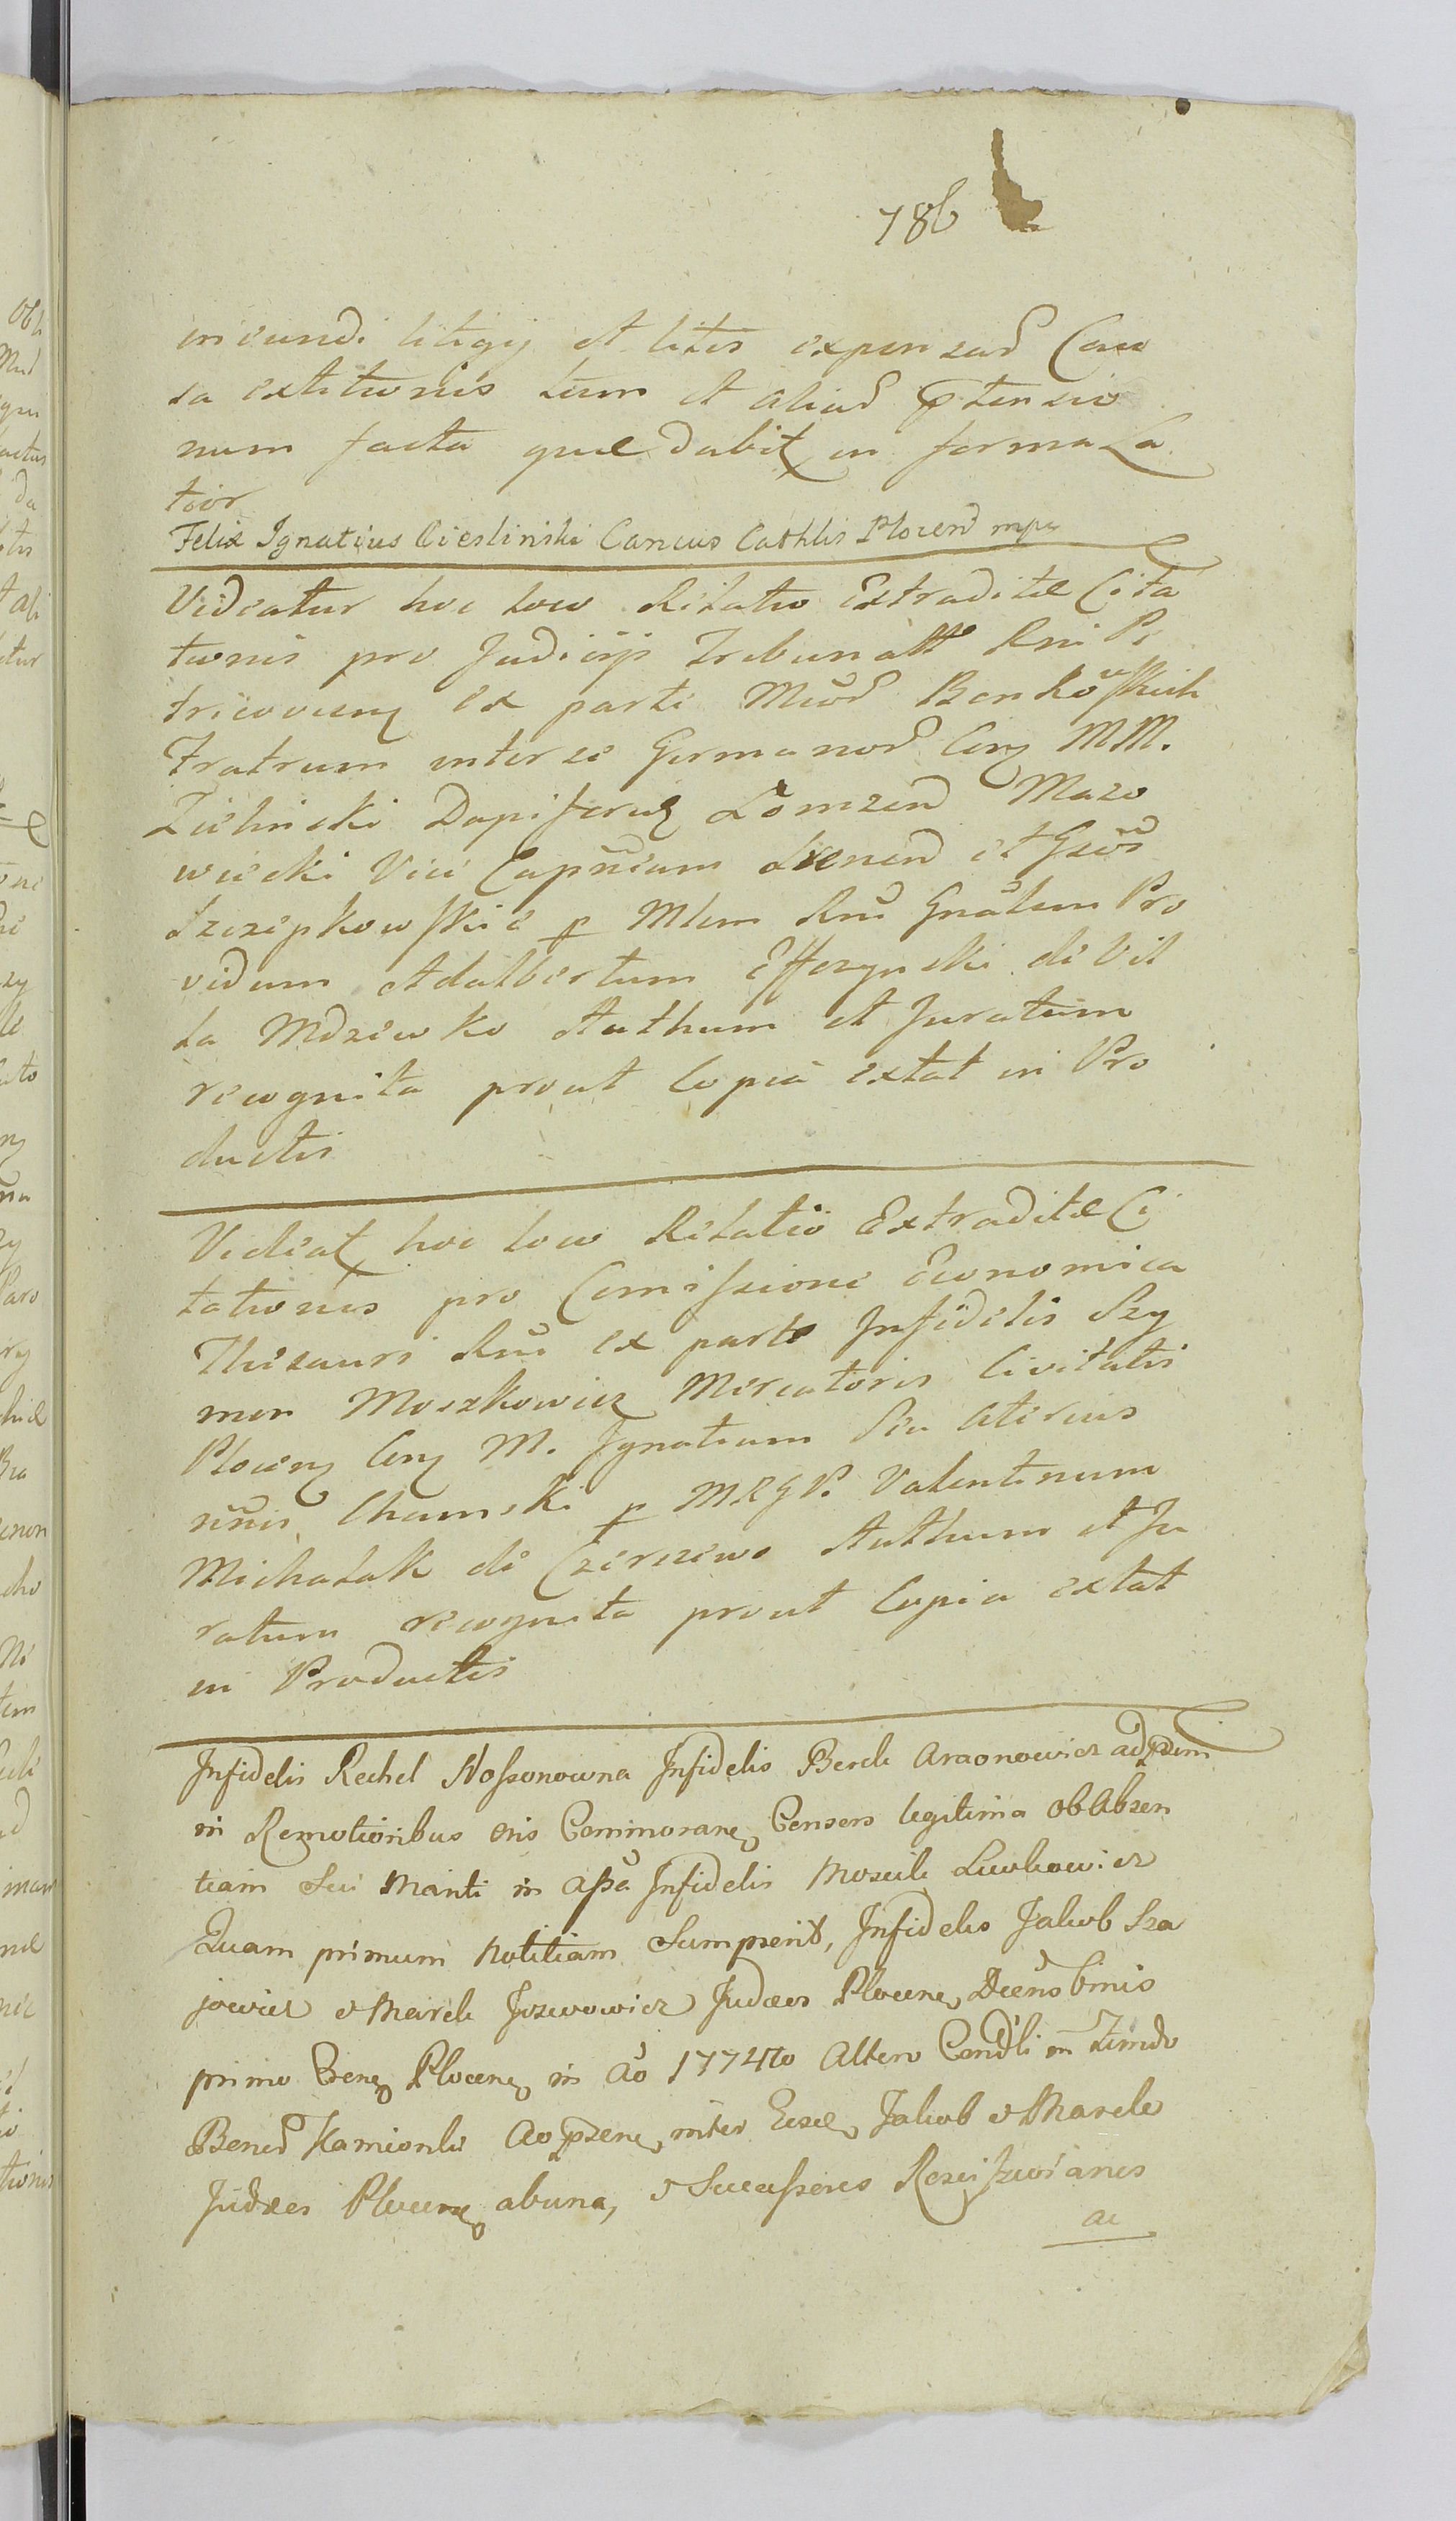 786
ineundi litigij et litis expensar Cau
sa extitionis tum et aliar ptensio
num facta quæ dabit in forma La
tior
Felix Ignatius Cieslinski Cancus Cathlis Plocen mpa
Videatur hoc loco Relatio Extraditæ Cita
tionis pro Judicijs Tribunalt Rni Pe
tricovien ex parte Mcor Bonkowskich
Fratrum inter se Germanor Con MM.
Zielinski Dapiferus Łomzen Mazo
wiecki Vice Capneum et Gsor
Szczepkowskie p Mlem Rni Gnalem Pro
vidum Adalbertum de Vil
la Mdzewko Authum et Juratum
recognita prout Copia extat in Pro
ductis
Videat hoc loco Relatio Extraditæ Ci
tationis pro Comissione Economica
Thesauri Rni ex parte Infidelis Szy
mon Moszkowicz Mercatoris Civitatis
Plocen Con M. Ignatium Seu alterius
nnis Chamski p MRGP. Valentinum
Michalak de Czerniewo Authum et Ju
ratum recognita prout Copia extat
in Productis
Infidelis Rechel Nossonowna Infidelis Berek Araonowicz ad psens
in Remotioribus oris Commoran Consors legitima ob absen
tiam Sui Mariti in assa Infidelis Moszek Lewkowicz
Quam primum notitiam Sumpserit, Infidelis Jakob Sza
jowicz & Marek Jozwowicz Judæos Plocen, Decens binis
primo Plocen in Ao 1774to Altero Condli in Fundo
Bener Kamionki Ao psen, inter Eosd, Jakob & Marek
Judæos Plocen ab una, & Successores
ac